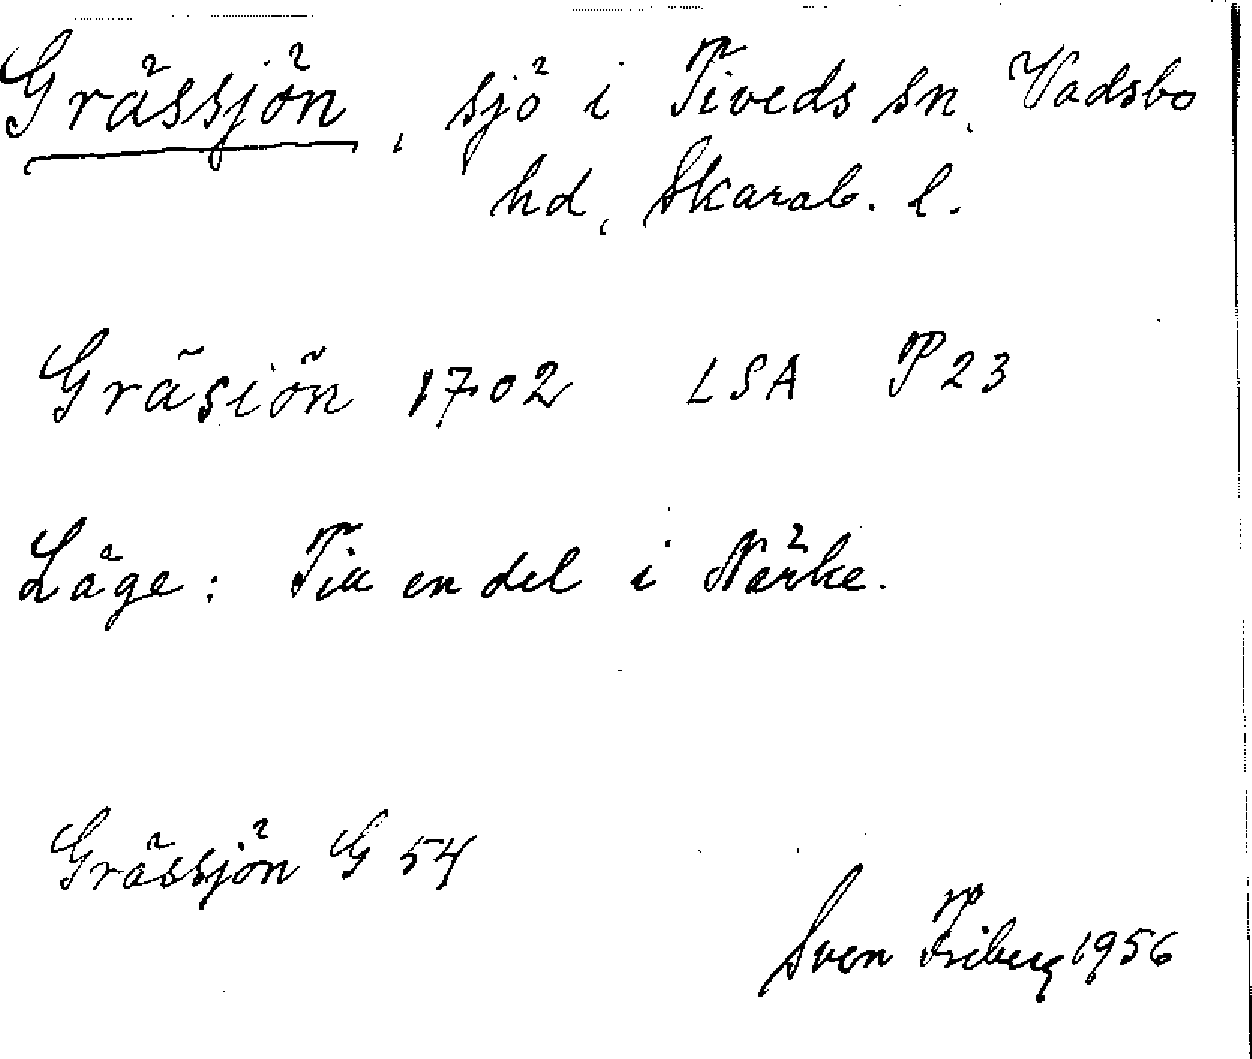 Grässjön, sjö i Tiveds sn, Vadsbo
hd, Skarab. l.
Gräsiön 1702 LSA P 23
Läge: Till en del i Närke.
Grässjön G 54
Sven Friberg 1956